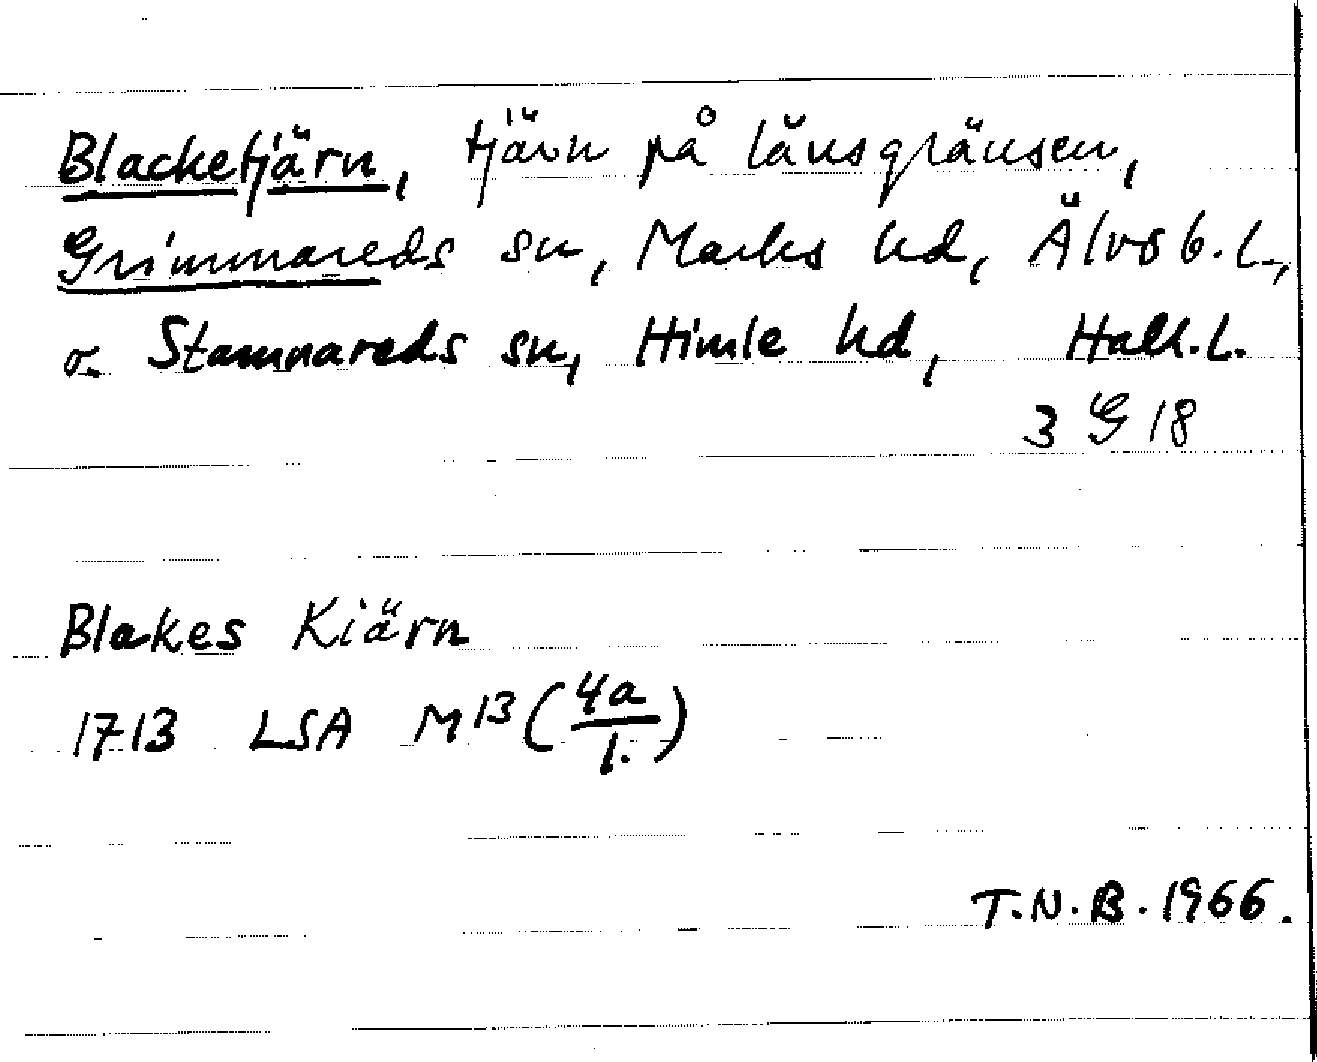 Blacketjärn, tjärn på länsgränsen,
Grimmareds sn, Marks hd, Älvsb. L.,
o. Stamnareds sn, Himle hd, Hall. L.
3 G 18
Blakes Kiärn
1713 LSA M13 (4a/1.)
T.N.B. 1966.